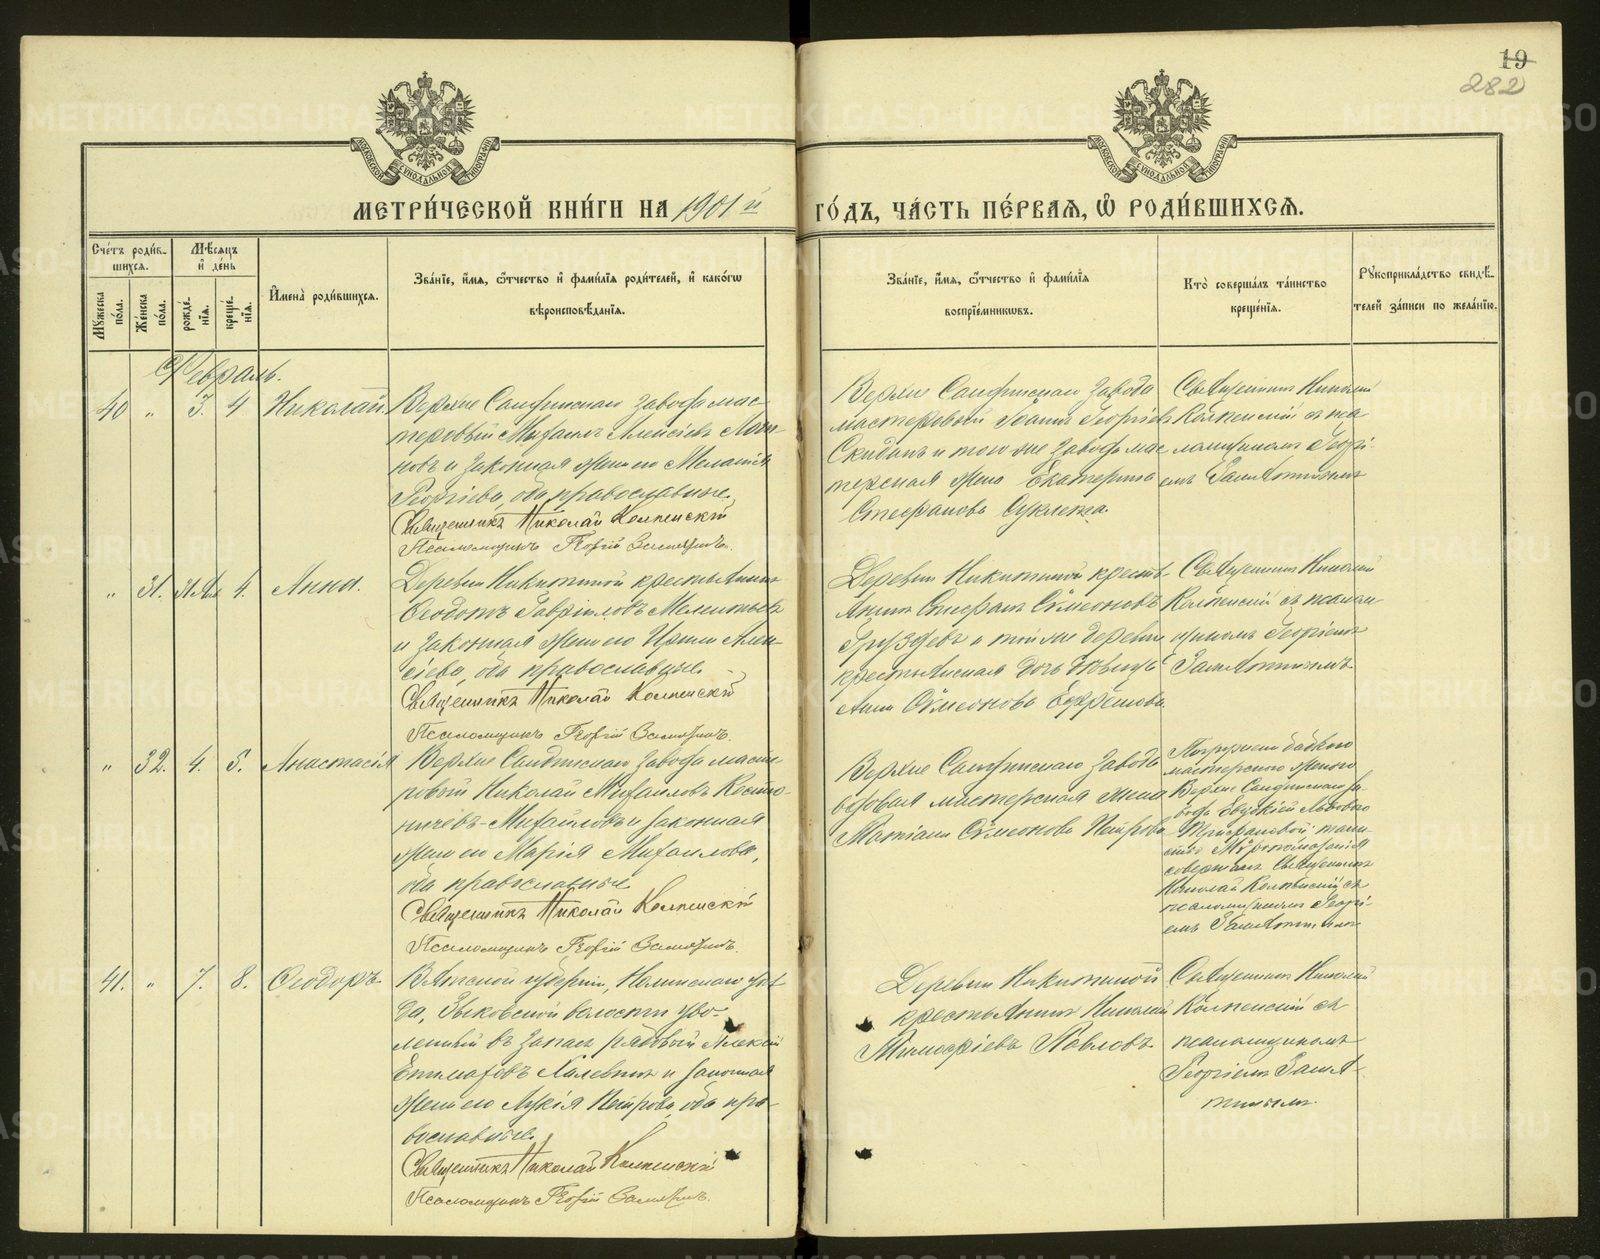 19
282
МОСКОВСКОЙ СѴНОДАЛЬНОЙ ТИПОГРАФІИ
МОСКОВСКОЙ СѴНОДАЛЬНОЙ ТИПОГРАФІИ
МЕТРИ́ЧЕСКОЙ КНИ́ГИ НА 1901 й ГО́ДЪ, ЧА́СТЬ ПЕ́РВАЯ, Ѿ РОДИ́ВШИХСЯ.
Сче́тъ роди́в-
шихся.
Мѣ́сяцъ
и҆ де́нь
Мꙋжеска по́ла.
Же́нска по́ла.
рожде́-
нїѧ.
креще́-
нїѧ.
И҆мена̀ роди́вшихся.
Зва́нїе, и҆́мя, ѻ҆́тчество и҆ фами́лїя роди́телей, и҆ како́гѡ
вѣроисповѣ́данїѧ.
Зва́нїе, и҆́мя, ѻ҆́тчество и҆ фами́лїѧ
воспрїе́мникѡвъ.
Кто̀ соверша́лъ та́инство
креще́нїѧ.
Рꙋкоприкла́дство свидѣ́-
телей за́писи по жела́нїю.
Февраль.
40 " 3. 4 Николай.
Верхне Сандинскаго завода мас-
теровый Михаилъ Алексіевъ
и законная жена его Меланія
Георгіева, оба православные.
Священникъ Николай Колпенскій
Псаломщикъ Георгій Замятинъ.
Верхне Сандинскаго завода
мастеровой Іоаннъ Георгіевъ
Скиданъ и того же завода мас
терская жена Екатерина
Стефанова
Священникъ Николай
Колпенскій съ пса
ломщикомъ Георгі-
емъ Замятинымъ
" 31. 4. Анна.
Деревни Никитиной крестьянинъ
Ѳеодотъ Гавріиловъ Мелентьевъ
и законная жена его Ирина Алек-
сіева, оба православные.
Священникъ Николай Колпенскій
Псаломщикъ Георгій Замятинъ.
Деревни Никитиной кресть-
янинъ Стефанъ Сѵмеоновъ
Груздевъ и той же деревни
крестьянская дочь дѣвица
Анна Сѵмеонова Ефремова.
Священникъ Николай
Колпенскій съ псалом-
щикомъ Георгіемъ
Замятинымъ.
" 32. 4. 5. Анастасія
Верхне Сандинскаго завода масте-
ровый Николай Михаиловъ Кости-
ничевъ-Михайловъ и законная
жена его Марія Михаилова,
оба православные.
Священникъ Николай Колпенскій
Псаломщикъ Георгій Замятинъ.
Верхне Сандинскаго завода
вдовая мастерская жена
Татіана Сѵмеонова Петрова
Погружена бабкою
мастерскою женою
Верхне Сандинскаго за-
вода Евдокіей Львовою
таин-
ство Мѵропомазанія
совершалъ Священникъ
Николай Колпенскій съ
псаломщикомъ Георгі-
емъ Замятинымъ
41. " 7. 8. Ѳеодоръ.
Вятской губерніи, Нолинскаго уѣз
да, Зыковской волости уво-
ленный въ запасъ рядовый Алексій
и законная
жена его Лукія Петрова, оба пра-
вославные.
Священникъ Николай Колпенскій
Псаломщикъ Георгій Замятинъ.
Деревни Никитиной
крестьянинъ Николай
Тимофіевъ Павловъ
Священникъ Николай
Колпенскій съ
псаломщикомъ
Георгіемъ Замя-
тинымъ.
METRIKI.GASO-URAL.RU